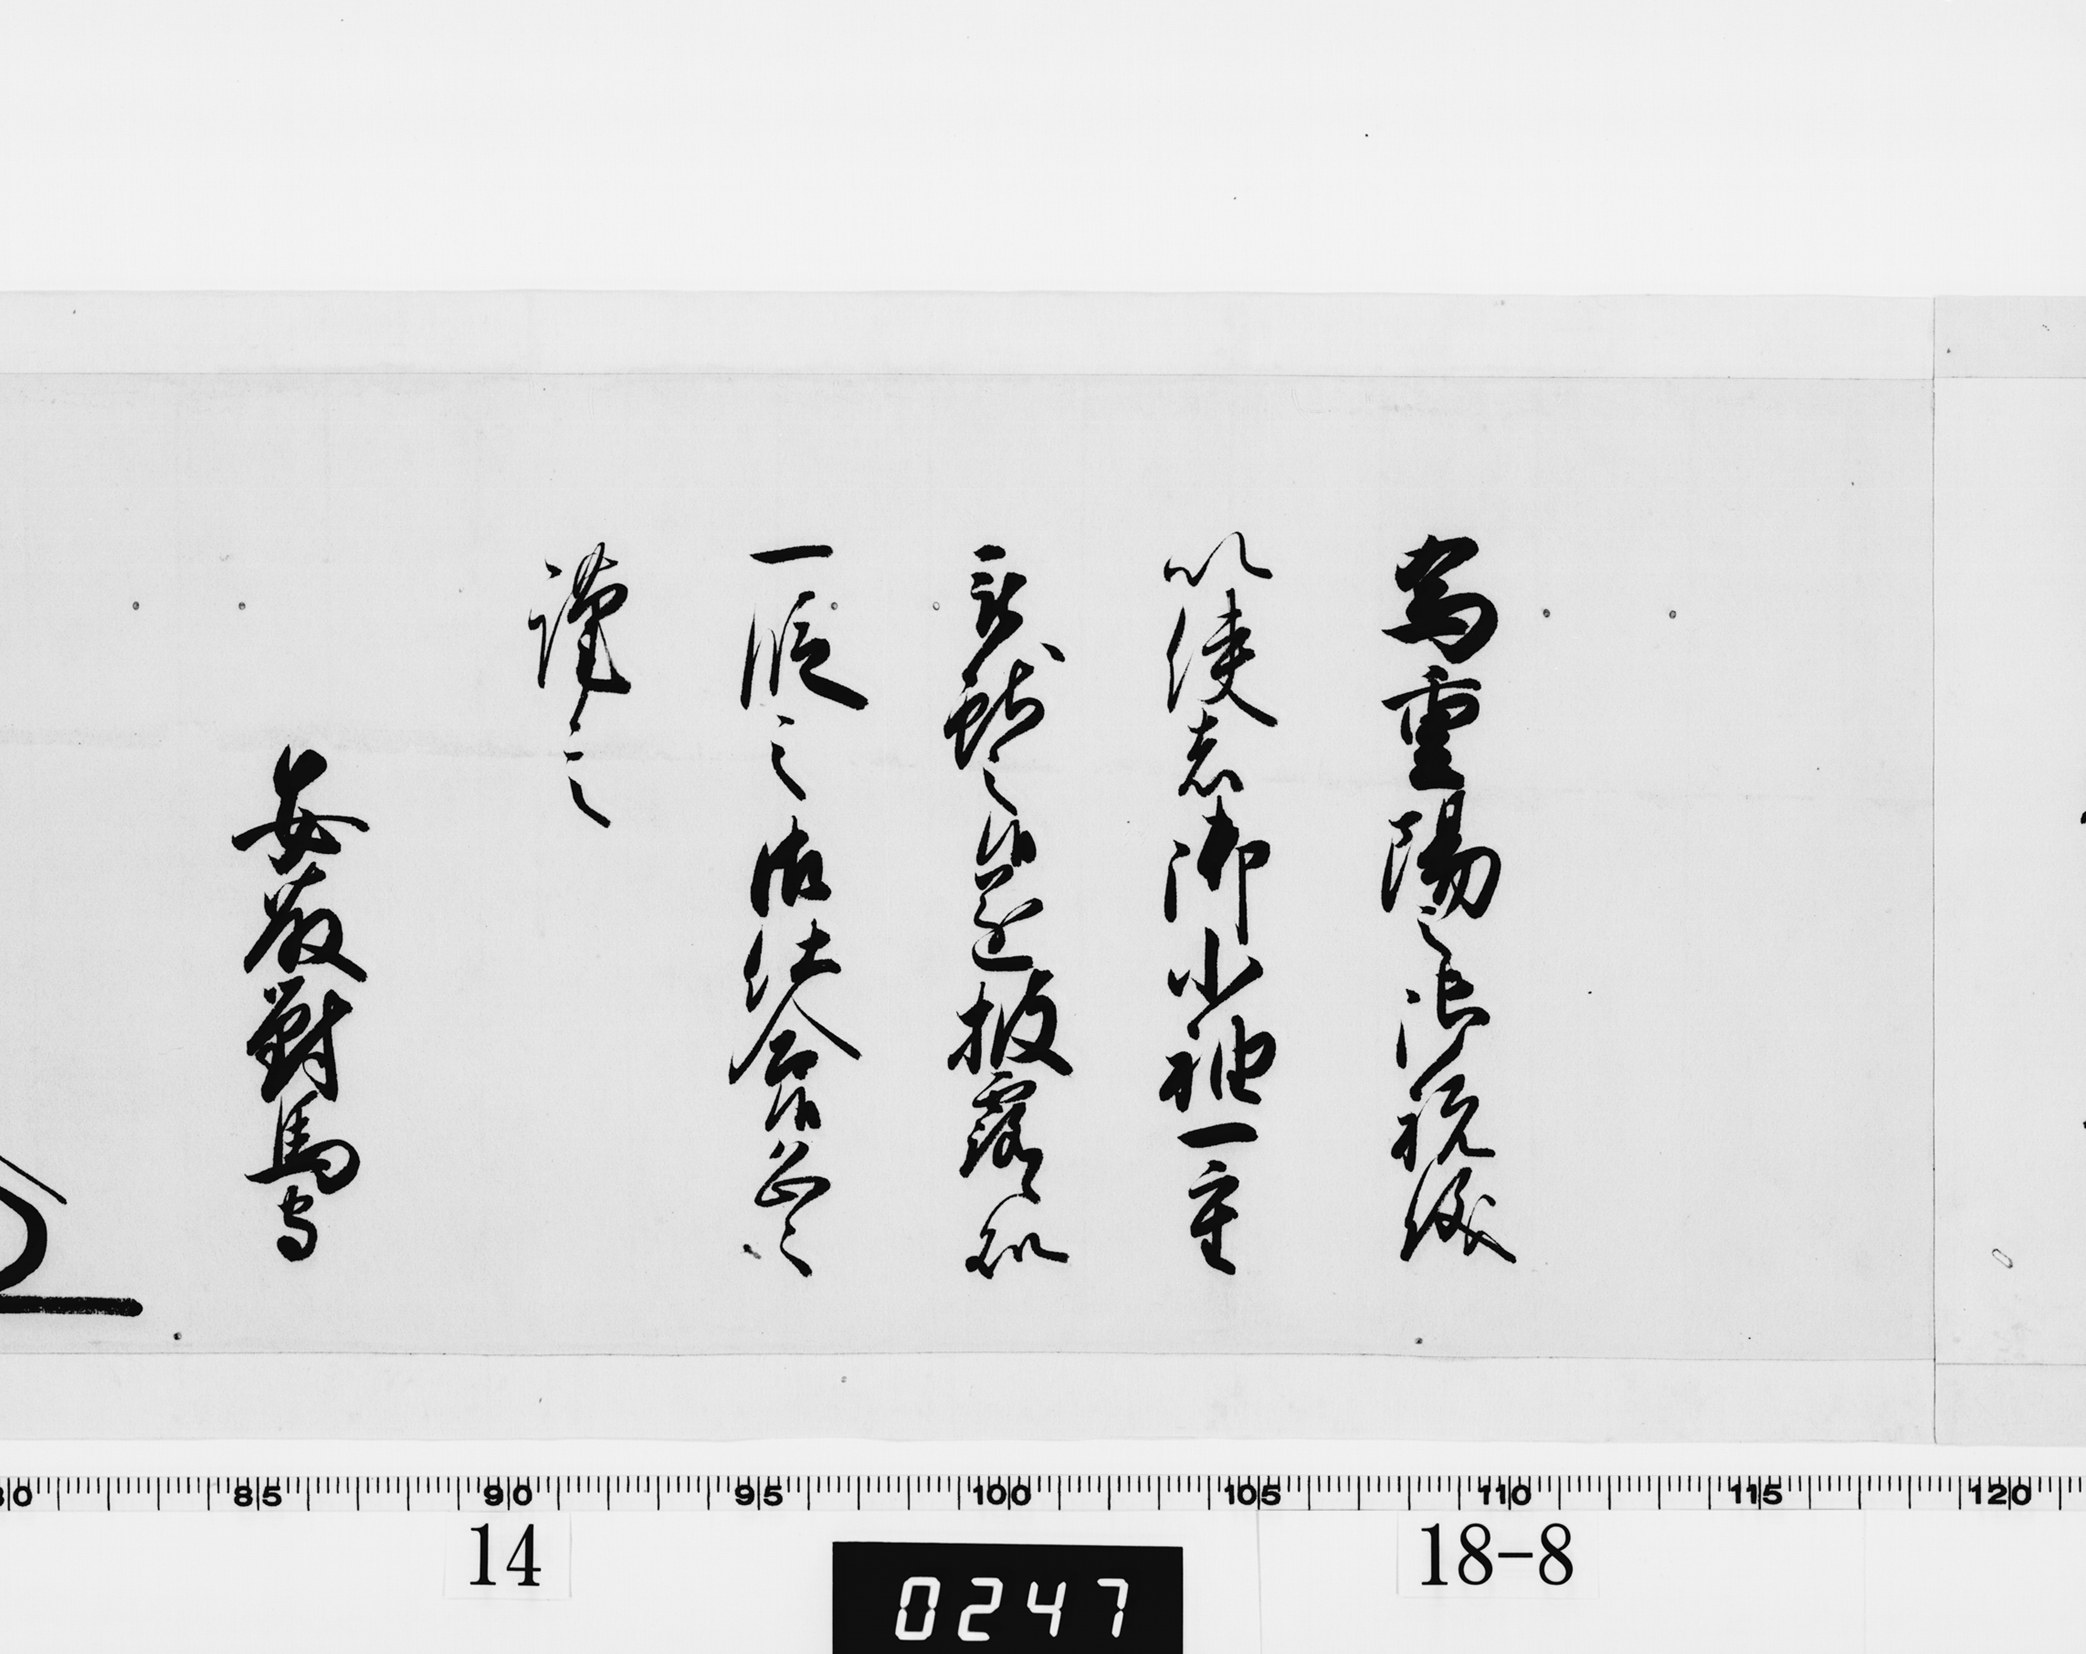 為重陽之御祝儀
以使者御小袖一重
献之候遂披露候
一段之御仕合候
謹言
安藤對馬守
80 85 90 95 100 105 110 115 120
14
18-8
0247